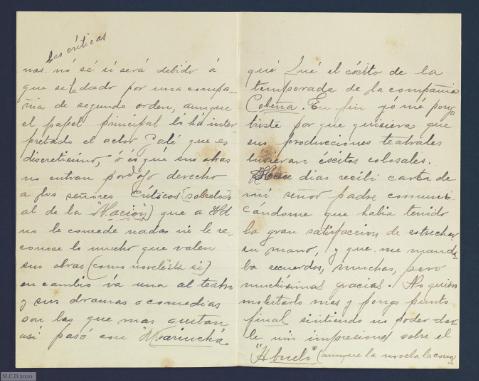 las críticas
nas no sé si será debido á
que se ha dado por una compa-
ñia de segundo orden, aunque
el papel principal lo ha inter
pretado el actor que es
discretisimo, ó es que sus obras
no entran por ojo derecho
á los señores críticos (sobretodo
al de la Nacion) que á Vd
no le concede nada ni le re-
conoce lo mucho que valen
sus obras (como novelista si)
en cambio va una al teatro
y sus dramas o comedias
son las que mas gustan
así pasó con Mariucha
que fué el éxito de la
temporada de la compañia
Cobeña. En fin yo me pongo
triste por que quisiera que
sus producciones teatrales
tuvieran éxitos colosales.
Hace dias recibi carta de
mi señor padre comuni-
cándome que habia tenido
la gran satisfacion de estrechar
su mano, y que me manda
ba recuerdos, muchas, pero
muchisimas gracias. No quiero
molestarlo mas y pongo punto
final sintiendo no poder dar
le mis impresiones sobre el
"Abuelo" (aunque la novela la conoz